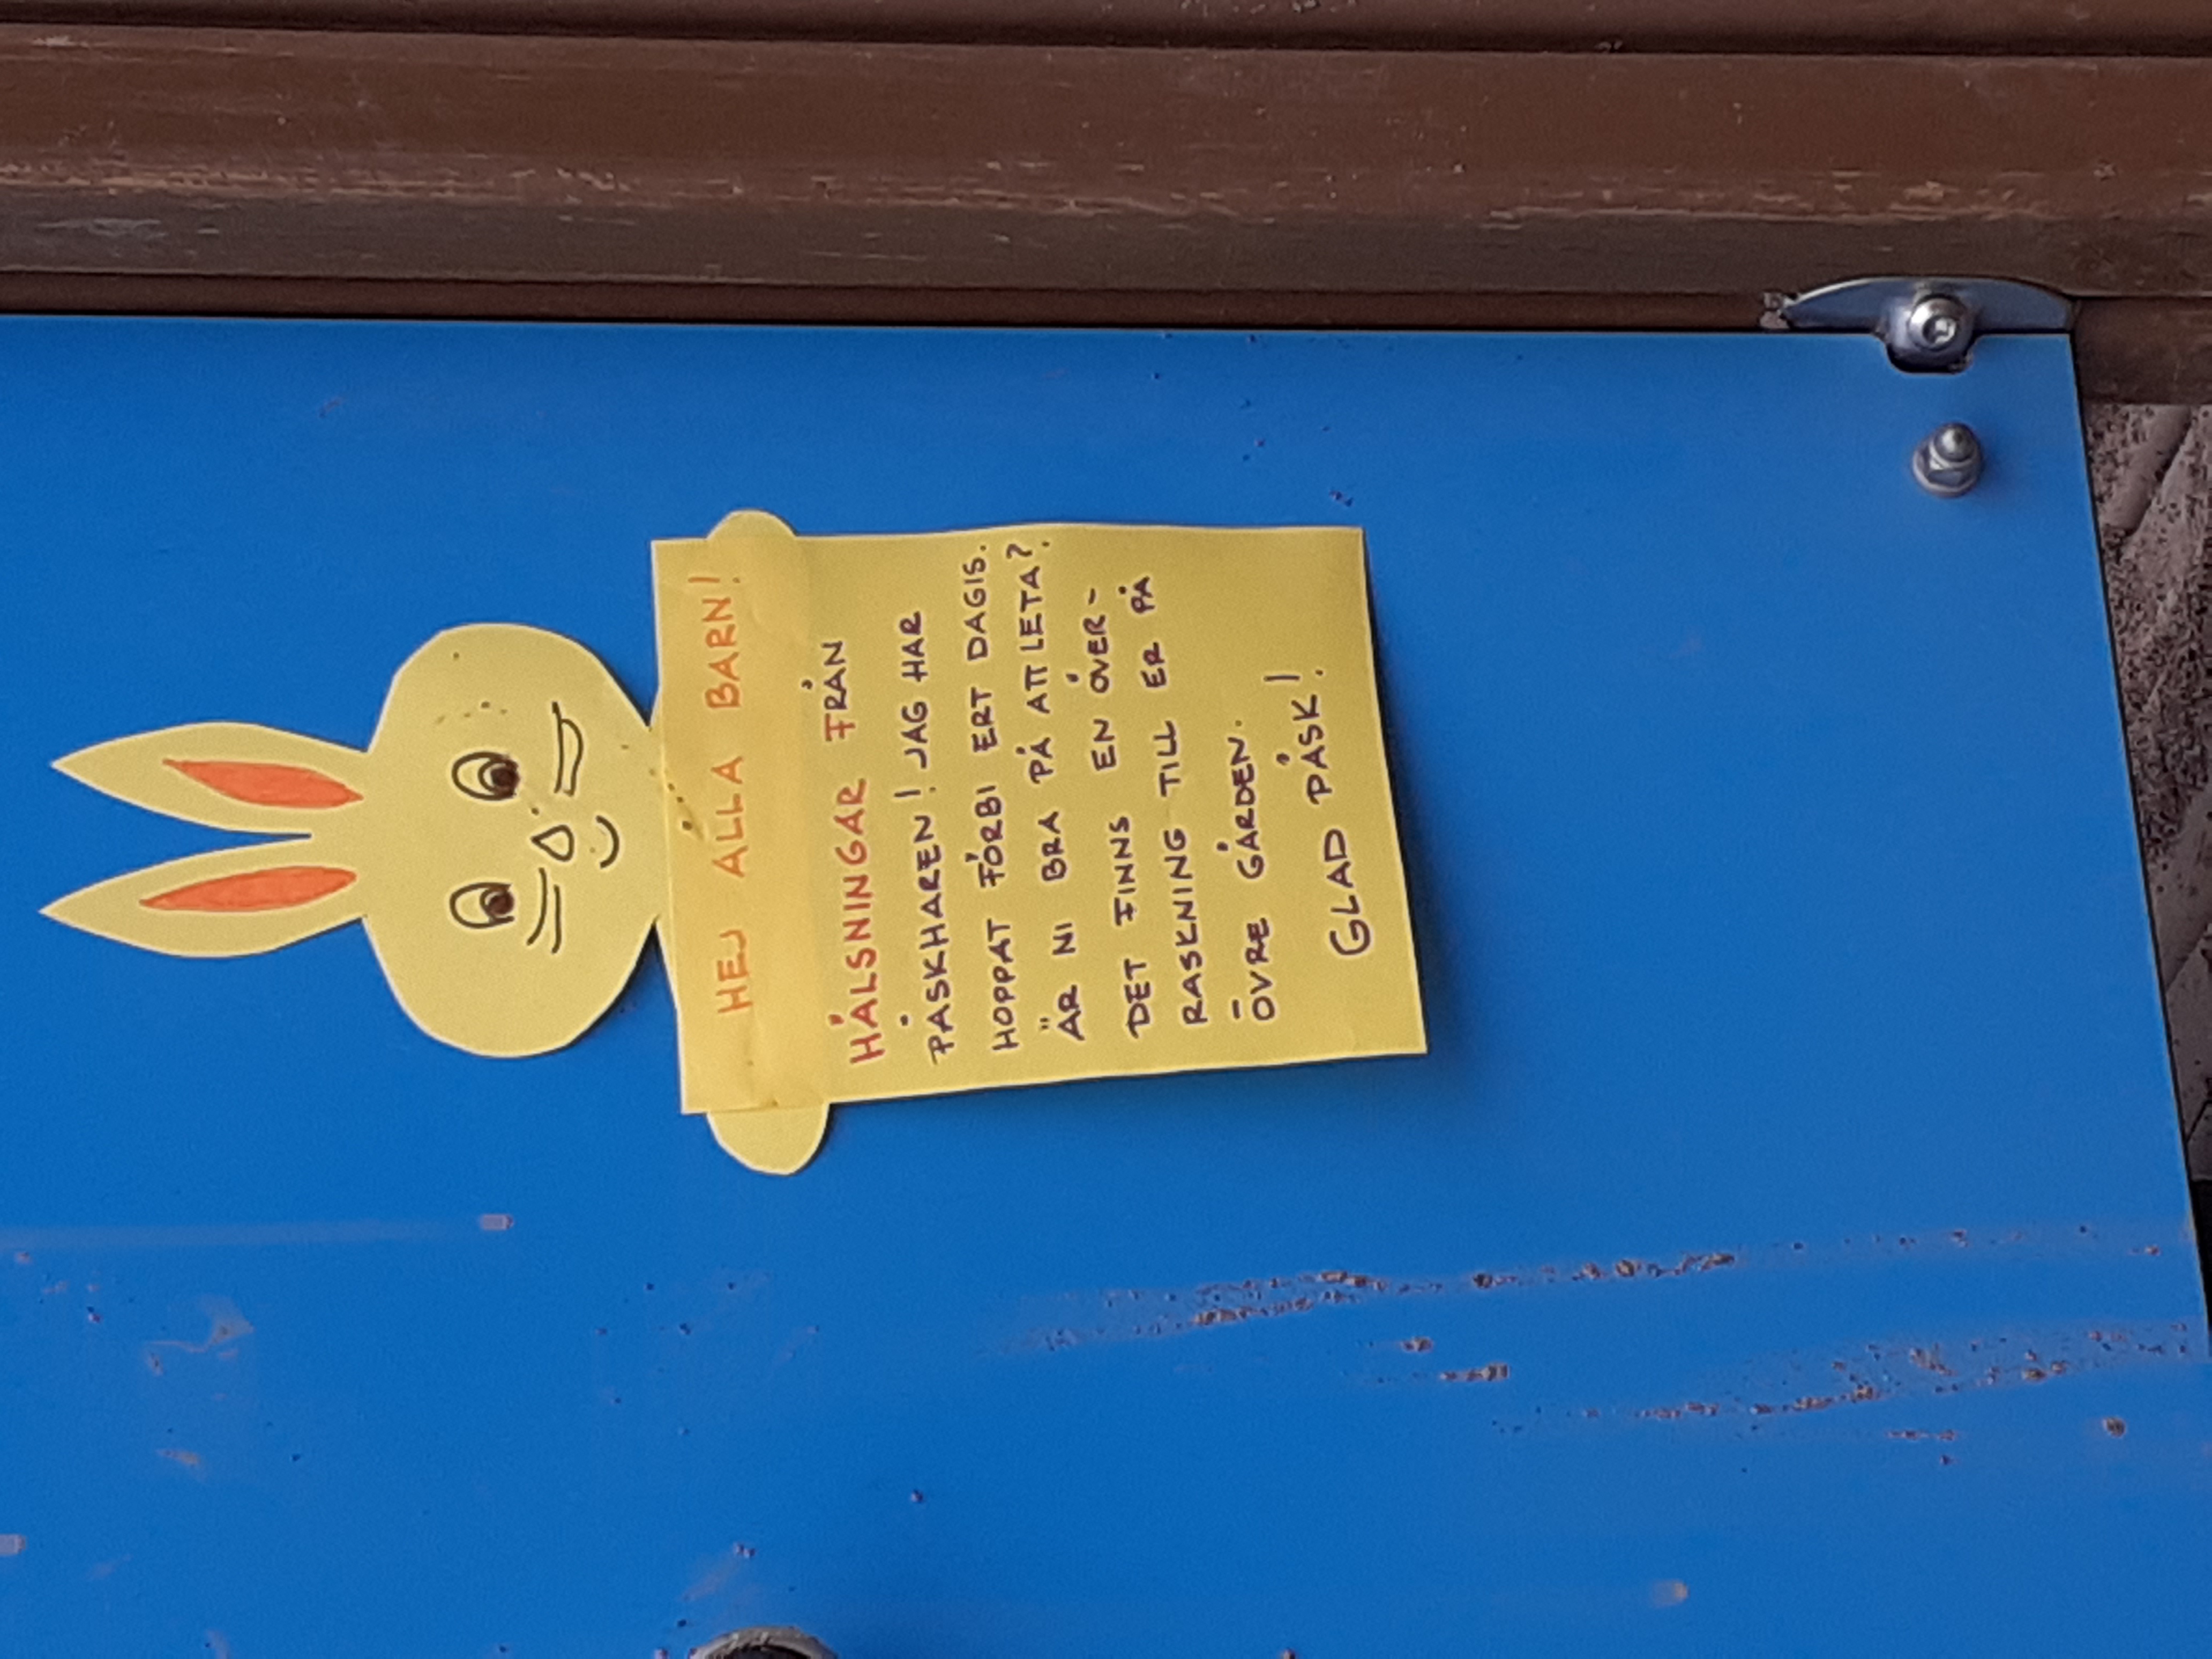 HEJ ALLA BARN!
HÄLSNINGAR FRÅN
PÅSKHAREN! JAG HAR
HOPPAT FÖRBI ERT DAGIS.
ÄR NI BRA PÅ ATT LETA?
DET FINNS EN ÖVER-
RASKNING TILL ER PÅ
ÖVRE GÅRDEN.
GLAD PÅSK!